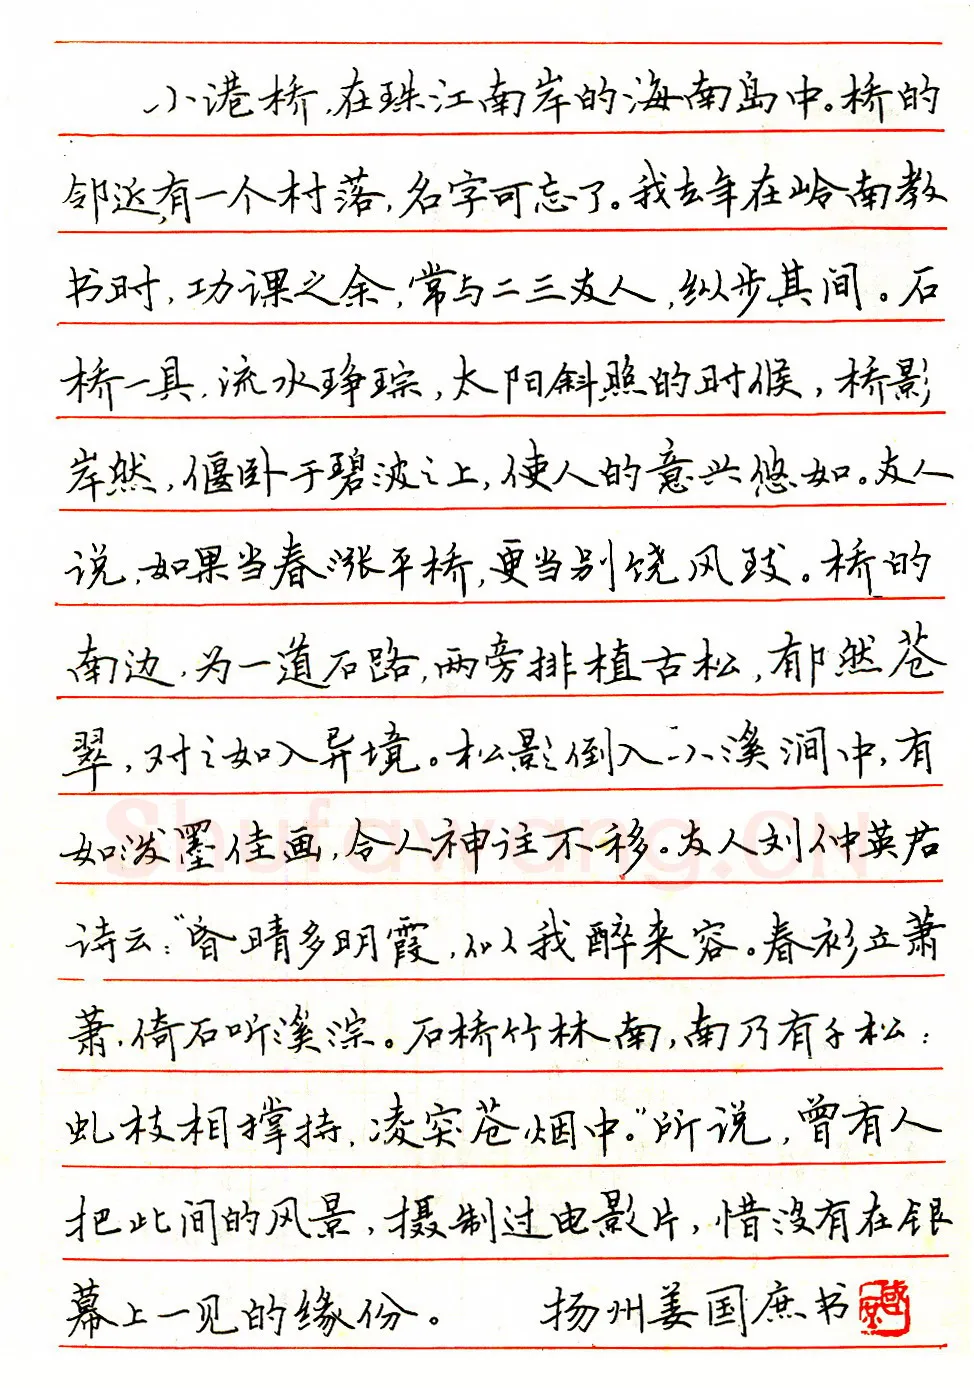 小港桥，在珠江南岸的海南岛中。桥的
邻近，有一个村落，名字可忘了。我去年在岭南教
书时，功课之余，常与二三友人，纵步其间。石
桥一具，流水琤琮，太阳斜照的时候，桥影
岸然，偃卧于碧波之上，使人的意兴悠如。友人
说，如果当春涨平桥，更当别饶风致。桥的
南边，为一道石路，两旁排植古松，郁然苍
翠，对之如入异境。松影倒入小溪涧中，有
如泼墨佳画，令人神注不移。友人刘仲英君
诗云：“昏晴多明霞，似我醉来容。春衫立萧
萧，倚石听溪淙。石桥竹林南，南乃有千松：
虬枝相撑持，凌突苍烟中。”所说，曾有人
把此间的风景，摄制过电影片，惜没有在银
幕上一见的缘份。 扬州姜国庶书
Shufawang.CN